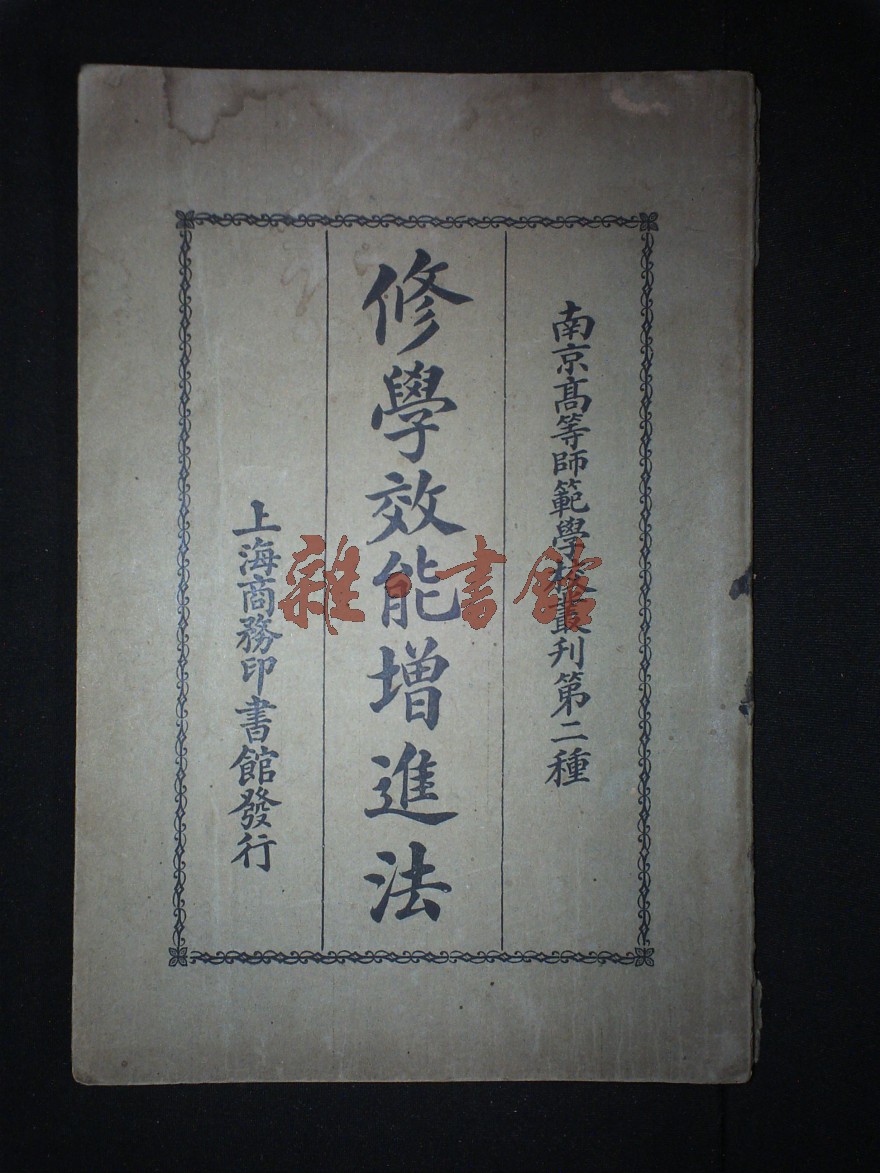 南京高等師範學校叢刊第二種
修學效能增進法
上海商務印書館發行
雜·書館